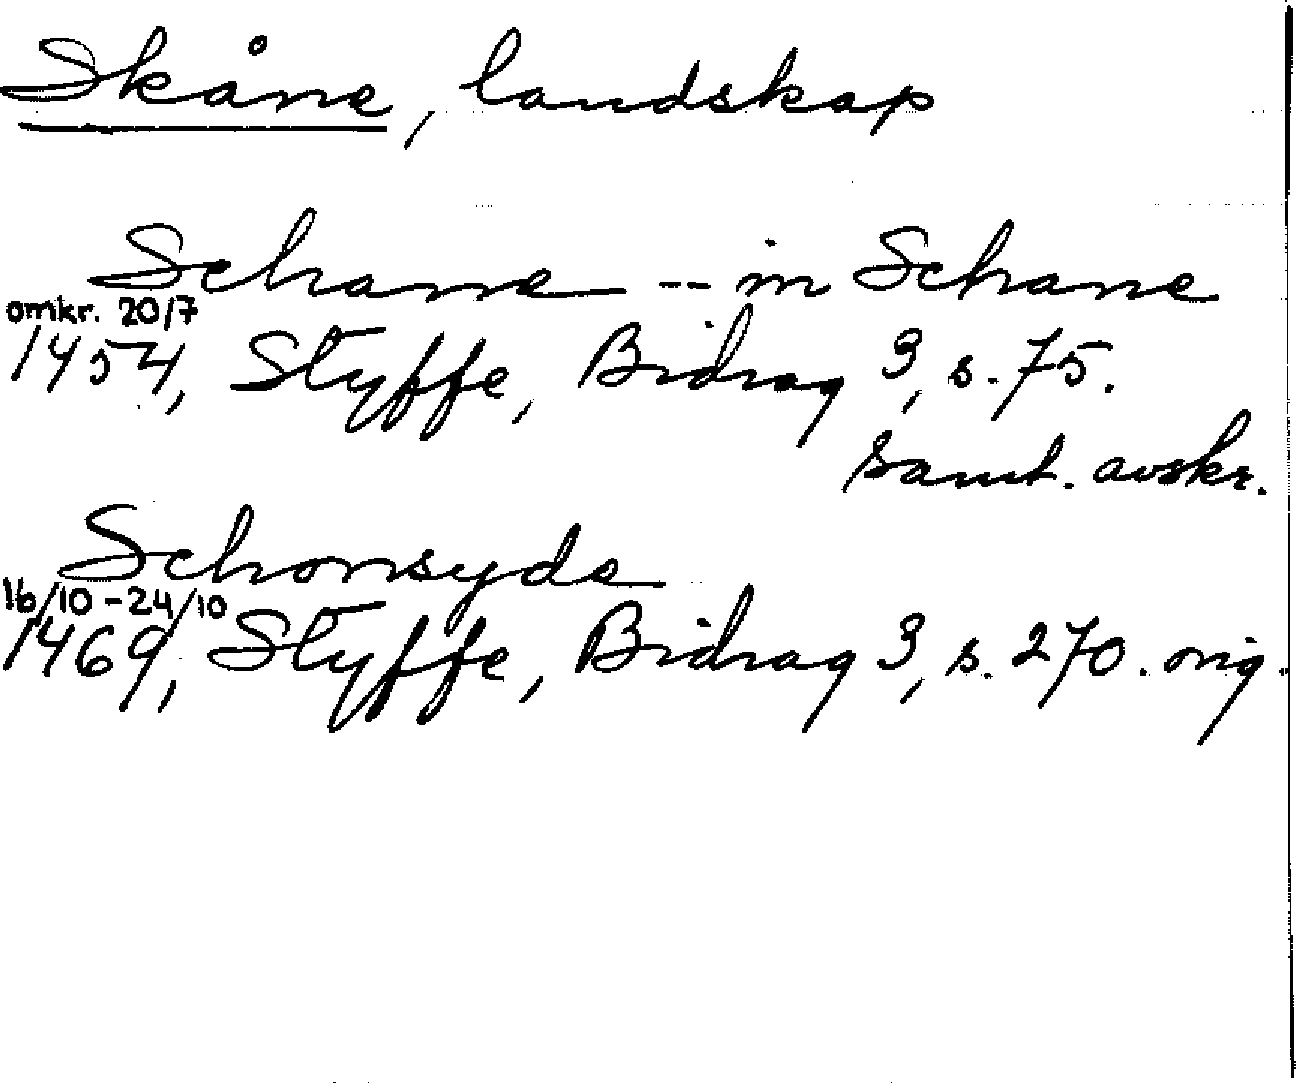 Skåne, landskap
Schane -- in Schane
omkr. 20/7
1454, Styffe, Bidrag 3, s. 75.
samt. avskr.
Schonsyds
16/10 - 24/10
1469, Styffe, Bidrag 3, s. 270. orig.